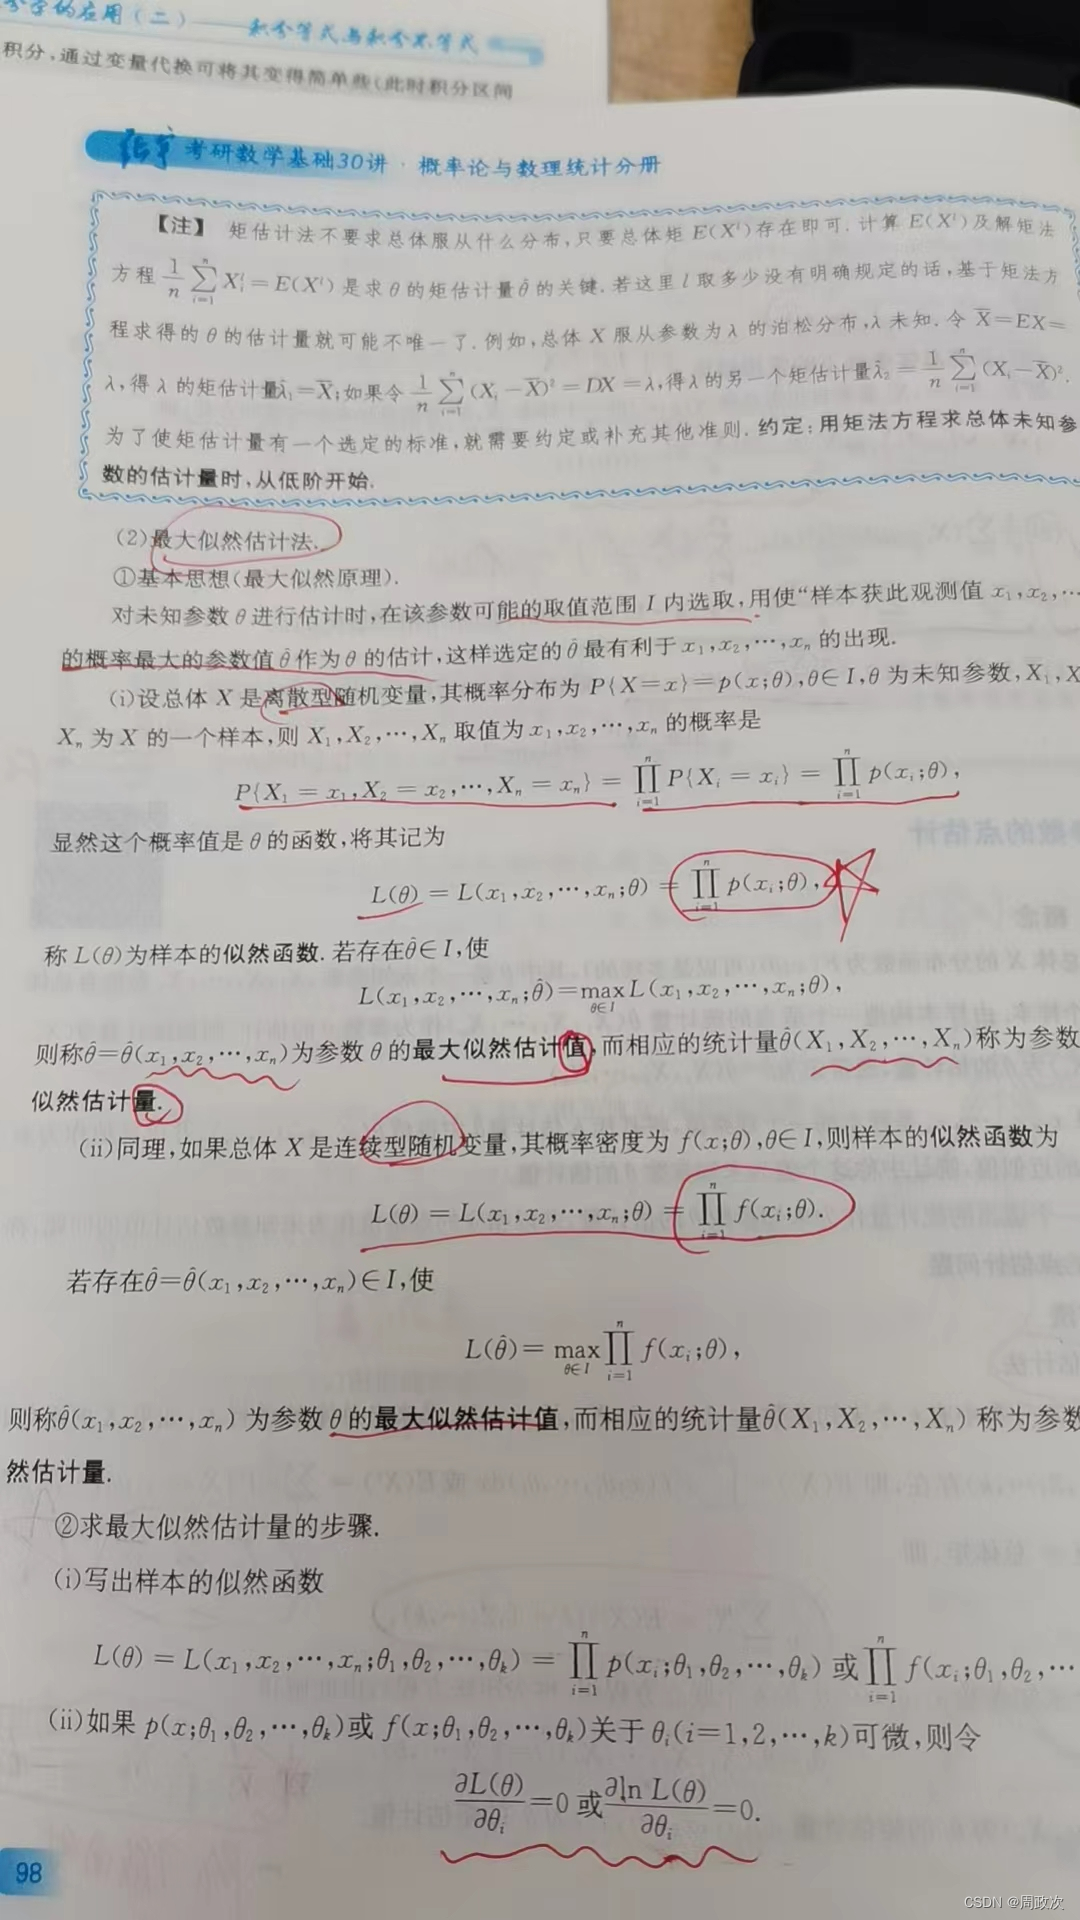 分学的应用(二)——积分等式与积分不等式
积分,通过变量代换可将其变得简单些(此时积分区间
张宇 考研数学基础30讲·概率论与数理统计分册
【注】 矩估计法不要求总体服从什么分布,只要总体矩 E(X^l)存在即可.计算 E(X^l)及解矩法
方程 1/n ∑_{i=1}^{n} X_i^l = E(X^l) 是求 θ 的矩估计量θ̂ 的关键.若这里 l 取多少没有明确规定的话,基于矩法方
程求得的 θ 的估计量就可能不唯一了.例如,总体 X 服从参数为 λ 的泊松分布,λ 未知.令 X̄=EX=
λ,得 λ 的矩估计量λ̂₁=X̄;如果令 1/n ∑_{i=1}^{n} (X_i-X̄)²=DX=λ,得 λ 的另一个矩估计量λ̂₂=1/n ∑_{i=1}^{n} (X_i-X̄)².
为了使矩估计量有一个选定的标准,就需要约定或补充其他准则.约定:用矩法方程求总体未知参
数的估计量时,从低阶开始.
(2)最大似然估计法.
①基本思想(最大似然原理).
对未知参数 θ 进行估计时,在该参数可能的取值范围 I 内选取,用使“样本获此观测值 x₁,x₂,…
的概率最大的参数值θ̂ 作为 θ 的估计,这样选定的θ̂ 最有利于 x₁,x₂,…,xₙ 的出现.
(ⅰ)设总体 X 是离散型随机变量,其概率分布为 P{X=x}=p(x;θ),θ∈I,θ 为未知参数,X₁,X
Xₙ 为 X 的一个样本,则 X₁,X₂,…,Xₙ 取值为 x₁,x₂,…,xₙ 的概率是
P{X₁=x₁,X₂=x₂,…,Xₙ=xₙ} = ∏_{i=1}^{n} P{X_i=x_i} = ∏_{i=1}^{n} p(x_i;θ),
显然这个概率值是 θ 的函数,将其记为
L(θ) = L(x₁,x₂,…,xₙ;θ) = ∏_{i=1}^{n} p(x_i;θ),
称 L(θ)为样本的似然函数.若存在θ̂∈I,使
L(x₁,x₂,…,xₙ;θ̂)=max_{θ∈I} L(x₁,x₂,…,xₙ;θ),
则称θ̂=θ̂(x₁,x₂,…,xₙ)为参数 θ 的最大似然估计值,而相应的统计量θ̂(X₁,X₂,…,Xₙ)称为参数
似然估计量.
(ⅱ)同理,如果总体 X 是连续型随机变量,其概率密度为 f(x;θ),θ∈I,则样本的似然函数为
L(θ) = L(x₁,x₂,…,xₙ;θ) = ∏_{i=1}^{n} f(x_i;θ).
若存在θ̂=θ̂(x₁,x₂,…,xₙ)∈I,使
L(θ̂) = max_{θ∈I} ∏_{i=1}^{n} f(x_i;θ),
则称θ̂(x₁,x₂,…,xₙ) 为参数 θ 的最大似然估计值,而相应的统计量θ̂(X₁,X₂,…,Xₙ) 称为参数
然估计量.
②求最大似然估计量的步骤.
(ⅰ)写出样本的似然函数
L(θ) = L(x₁,x₂,…,xₙ;θ₁,θ₂,…,θₖ) = ∏_{i=1}^{n} p(x_i;θ₁,θ₂,…,θₖ) 或 ∏_{i=1}^{n} f(x_i;θ₁,θ₂,…
(ⅱ)如果 p(x;θ₁,θ₂,…,θₖ)或 f(x;θ₁,θ₂,…,θₖ)关于 θ_i(i=1,2,…,k)可微,则令
∂L(θ)/∂θ_i=0 或 ∂ln L(θ)/∂θ_i=0.
98
CSDN @周政次